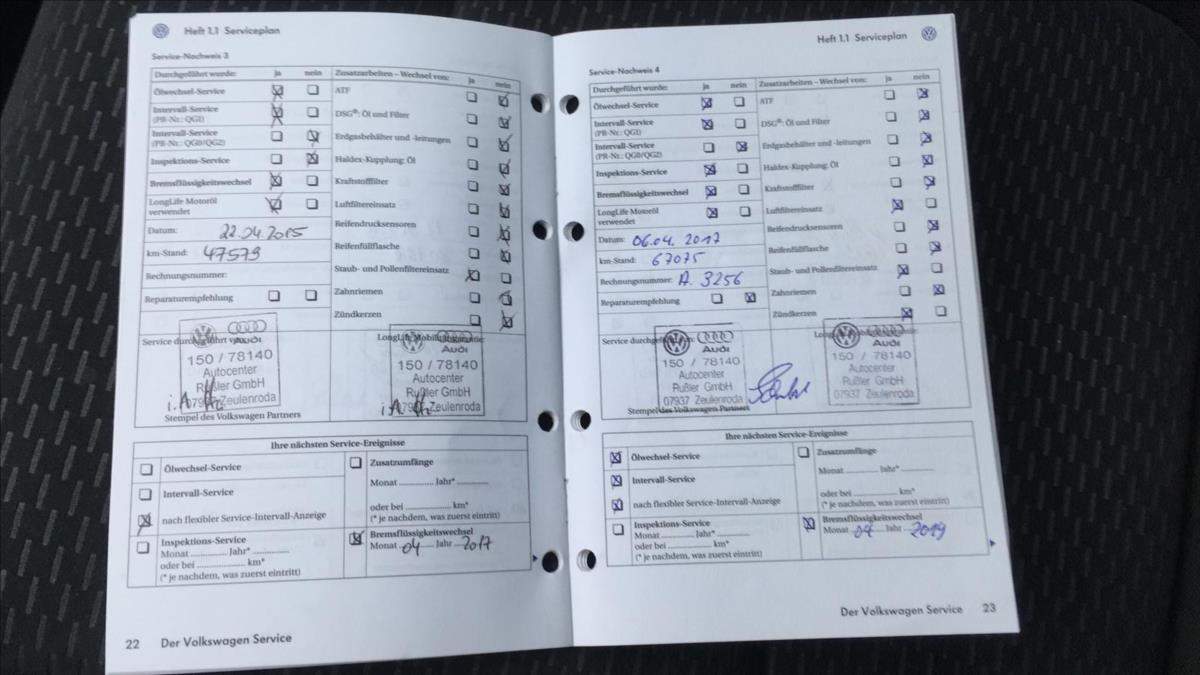 Heft 1.1 Serviceplan
Service-Nachweis 3
Durchgeführt wurde: ja nein
Ölwechsel-Service
Intervall-Service
(PR-Nr.: QG1)
Intervall-Service
(PR-Nr.: QG0/QG2)
Inspektions-Service
Bremsflüssigkeitswechsel
LongLife Motoröl
verwendet
Datum: 22.04.2015
km-Stand: 47579
Rechnungsnummer:
Reparaturempfehlung
Zusatzarbeiten – Wechsel von: ja nein
ATF
DSG®: Öl und Filter
Erdgasbehälter und -leitungen
Haldex-Kupplung: Öl
Kraftstofffilter
Luftfiltereinsatz
Reifendrucksensoren
Reifenfüllflasche
Staub- und Pollenfiltereinsatz
Zahnriemen
Zündkerzen
Service durchgeführt von:
Audi
150 / 78140
Autocenter
Rußler GmbH
07937 Zeulenroda
i.A
Stempel des Volkswagen Partners
LongLife Mobilitätsgarantie:
Audi
150 / 78140
Autocenter
Rußler GmbH
07937 Zeulenroda
i.A
Ihre nächsten Service-Ereignisse
Ölwechsel-Service
Intervall-Service
nach flexibler Service-Intervall-Anzeige
Inspektions-Service
Monat ............. Jahr* .............
oder bei ................... km*
(* je nachdem, was zuerst eintritt)
Zusatzumfänge
Monat ............. Jahr* .............
oder bei ................... km*
(* je nachdem, was zuerst eintritt)
Bremsflüssigkeitswechsel
Monat 04 Jahr 2017
22 Der Volkswagen Service
Heft 1.1 Serviceplan
Service-Nachweis 4
Durchgeführt wurde: ja nein
Ölwechsel-Service
Intervall-Service
(PR-Nr.: QG1)
Intervall-Service
(PR-Nr.: QG0/QG2)
Inspektions-Service
Bremsflüssigkeitswechsel
LongLife Motoröl
verwendet
Datum: 06.04.2017
km-Stand: 67075
Rechnungsnummer: A. 3256
Reparaturempfehlung
Zusatzarbeiten – Wechsel von: ja nein
ATF
DSG®: Öl und Filter
Erdgasbehälter und -leitungen
Haldex-Kupplung: Öl
Kraftstofffilter
Luftfiltereinsatz
Reifendrucksensoren
Reifenfüllflasche
Staub- und Pollenfiltereinsatz
Zahnriemen
Zündkerzen
Service durchgeführt von:
Audi
150 / 78140
Autocenter
Rußler GmbH
07937 Zeulenroda
Stempel des Volkswagen Partners
Audi
150 / 78140
Autocenter
Rußler GmbH
07937 Zeulenroda
Ihre nächsten Service-Ereignisse
Ölwechsel-Service
Intervall-Service
nach flexibler Service-Intervall-Anzeige
Inspektions-Service
Monat ............. Jahr* .............
oder bei ................... km*
(* je nachdem, was zuerst eintritt)
Zusatzumfänge
Monat ............. Jahr* .............
oder bei ................... km*
(* je nachdem, was zuerst eintritt)
Bremsflüssigkeitswechsel
Monat 04 Jahr 2019
Der Volkswagen Service 23